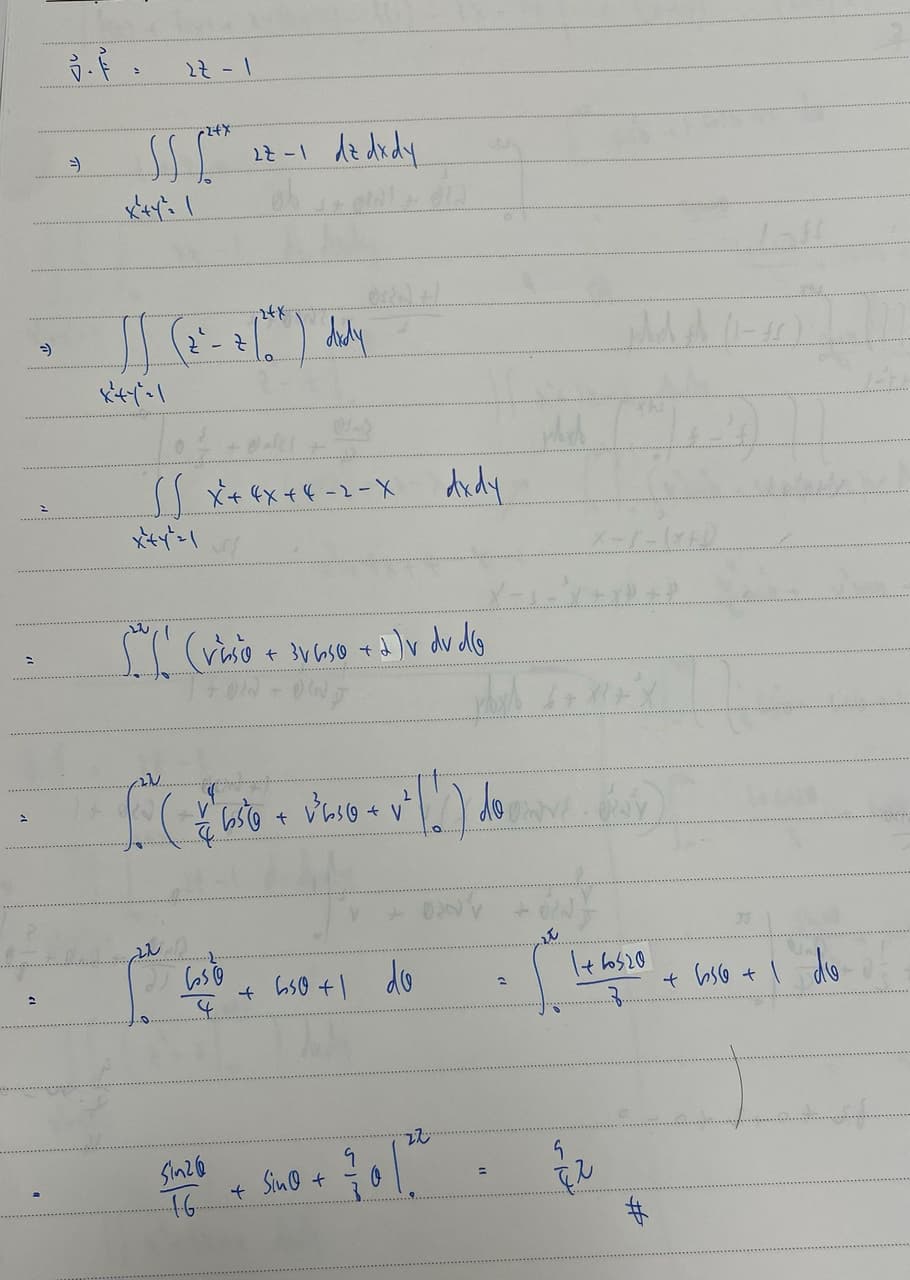 ∇⃗·F⃗ = 2z − 1
⇒ ∬∫₀^{2+x} 2z − 1 dz dx dy
x²+y²=1
⇒ ∬ (z² − z |₀^{2+x}) dx dy
x²+y²=1
= ∬ x² + 4x + 4 − 2 − x dx dy
x²+y²=1
= ∫₀^{2π} ∫₀^{1} (r²cos²θ + 3rcosθ + 2) r dr dθ
= ∫₀^{2π} (r⁴/4 cos²θ + r³cosθ + r² |₀^{1}) dθ
= ∫₀^{2π} cos²θ/4 + cosθ + 1 dθ = ∫₀^{2π} (1+cos2θ)/8 + cosθ + 1 dθ
= sin2θ/16 + sinθ + 9/8 θ |₀^{2π} = 9/4 π
#